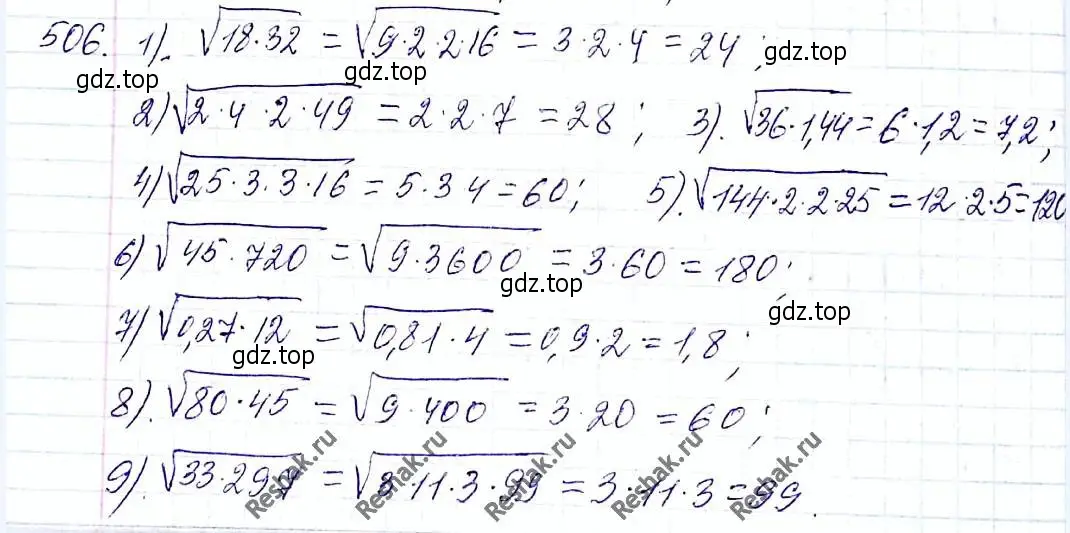 506. 1). √18·32 = √9·2·2·16 = 3·2·4 = 24;
gdz.top gdz.top gdz.top
2) √2·4·2·49 = 2·2·7 = 28; 3). √36·1,44 = 6·1,2 = 7,2;
4) √25·3·3·16 = 5·3 4 = 60; 5). √144·2·2·25 = 12·2·5 = 120
6) √45·720 = √9·3600 = 3·60 = 180;
gdz.top gdz.top
7) √0,27·12 = √0,81·4 = 0,9·2 = 1,8;
gdz.top
8). √80·45 = √9·400 = 3·20 = 60;
9). √33·297 = √3·11·3·99 = 3·11·3 = 99.
Reshak.ru Reshak.ru Reshak.ru Reshak.ru